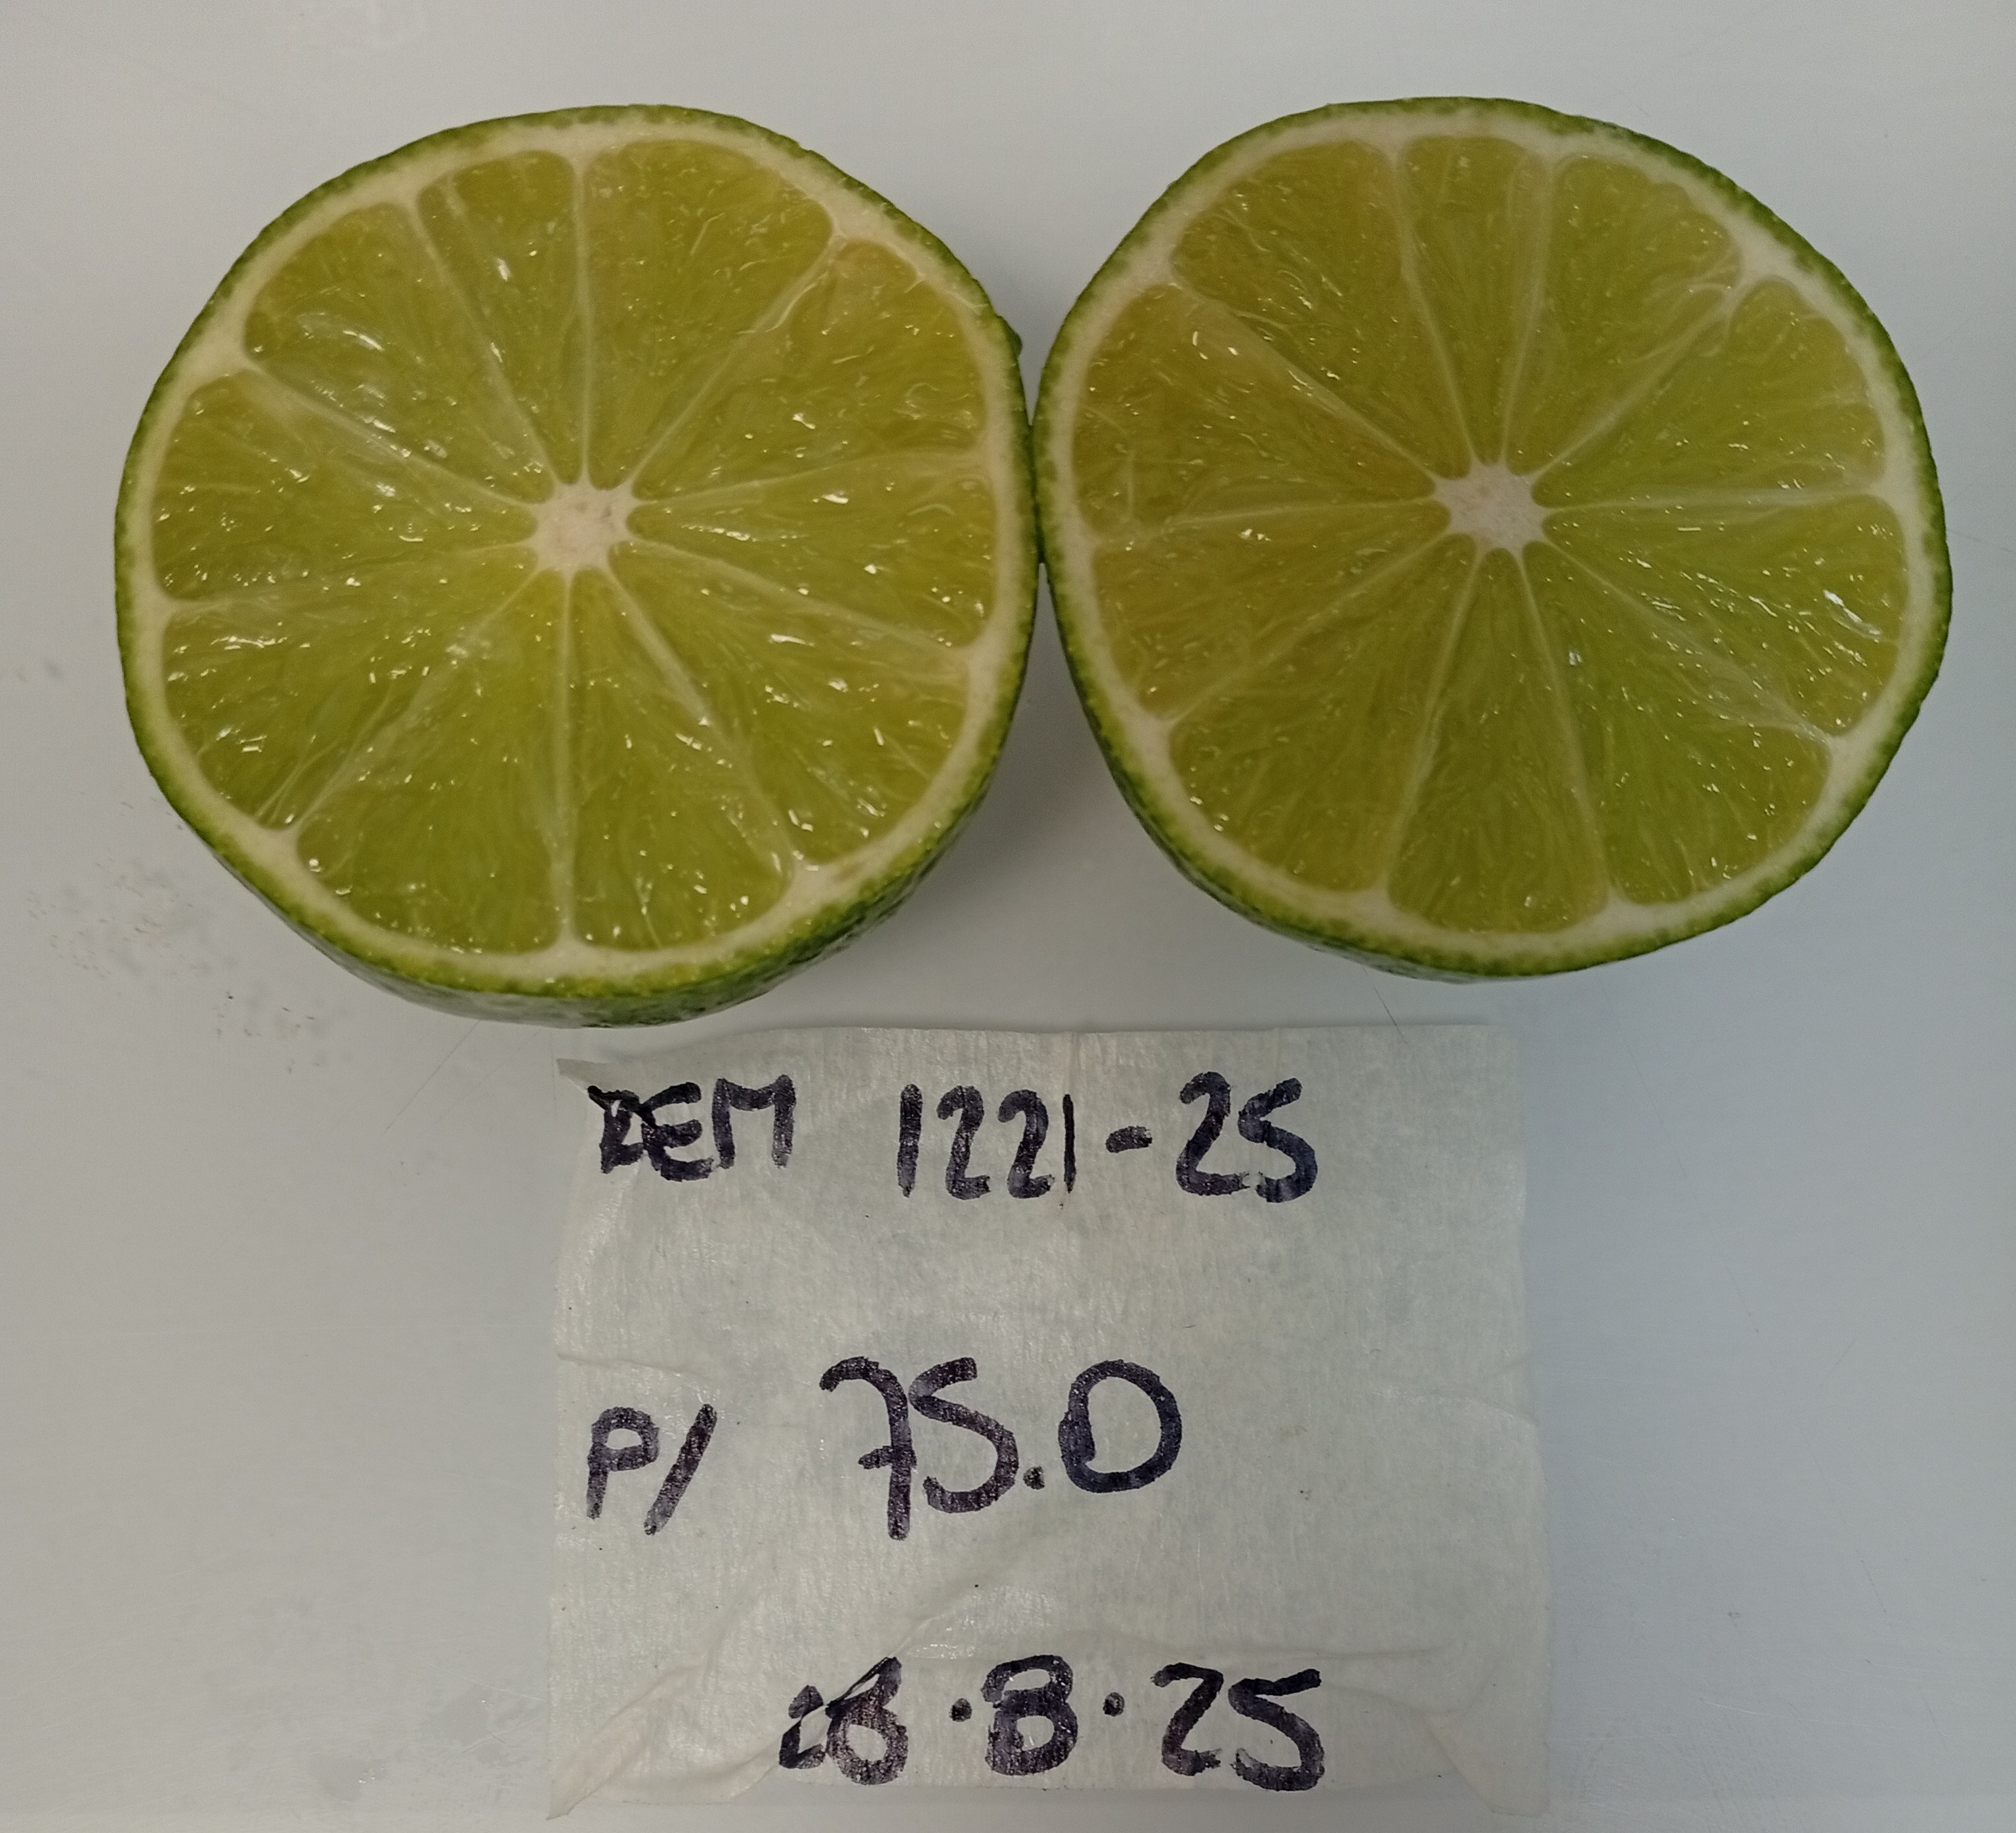 REM 1221-25
P/ 75.0
28.8.25